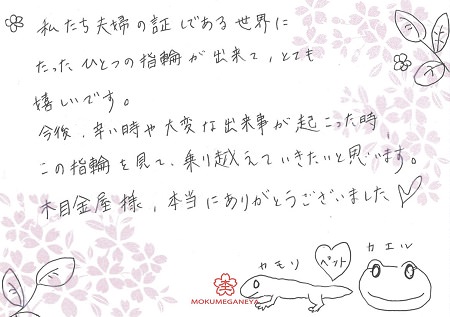 私たち夫婦の証しである世界に
たったひとつの指輪が出来て、とても
嬉しいです。
今後、辛い時や大変な出来事が起こった時、
この指輪を見て、乗り越えていきたいと思います。
木目金屋様、本当にありがとうございました
ヤモリ
ペット
カエル
MOKUMEGANEYA